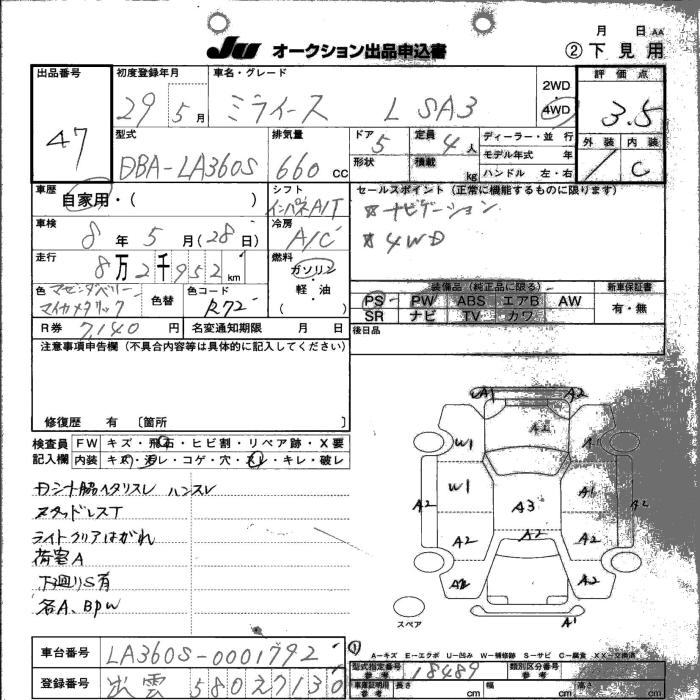 月 日 AA
JU オークション出品申込書 ② 下見用
出品番号 47
初度登録年月 29年 5月
車名・グレード ミライース L SA3
2WD
4WD
評価点 3.5
外装 内装 C
型式 DBA-LA360S
排気量 660 CC
ドア 5
形状
定員 4人
積載 kg
ディーラー・並行
モデル年式 年
ハンドル 左・右
車歴 自家用・( )
シフト インパネA/T
セールスポイント(正常に機能するものに限ります)
☆ナビゲーション
☆4WD
車検 8年 5月(28日)
冷房 A/C
走行 8万2千952km
燃料 ガソリン・軽油 ( )
色 マゼンダベリーマイカメタリック
色替
色コード R72
装備品(純正品に限る)
PS PW ABS エアB AW
SR ナビ TV カワ
新車保証書 有・無
R券 7,140円
名変通知期限 月 日
後日品
注意事項申告欄(不具合内容等は具体的に記入してください)
修復歴 有 〔箇所 〕
検査員記入欄
FW キズ・飛石・ヒビ割・リペア跡・X要
内装 キズ・汚レ・コゲ・穴・スレ・キレ・破レ
スタッドレスT
ライトクリアはがれ
荷室A
下廻りS有
各A、BPW
A1 A2
W1
W1 A1
A2 A3 A2
A2 A2 A2
A2 A2
A1
スペア
A-キズ E-エクボ U-凹み W-補修跡 S-サビ C-腐食 XX-交換済
車台番号 LA360S-0001792
登録番号 出雲 580 え 7130
型式指定番号 参考 18489
類別区分番号 参考
車庫証明用 参考 長さ cm 幅 cm 高さ cm